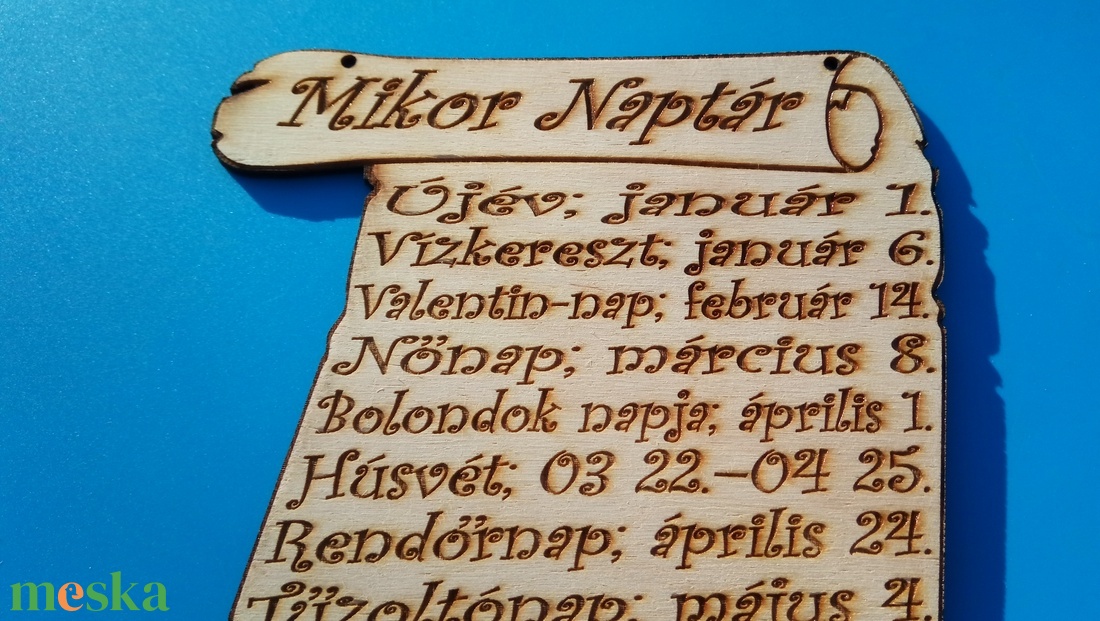 Mikor Naptár
Újév; január 1.
Vízkereszt; január 6.
Valentin-nap; február 14.
Nőnap; március 8.
Bolondok napja; április 1.
Húsvét; 03 22.-04 25.
Rendőrnap; április 24.
Tűzoltónap; május 4.
meska